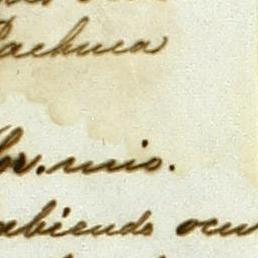 Pachuca
Sor. mio.
abiendo ocu